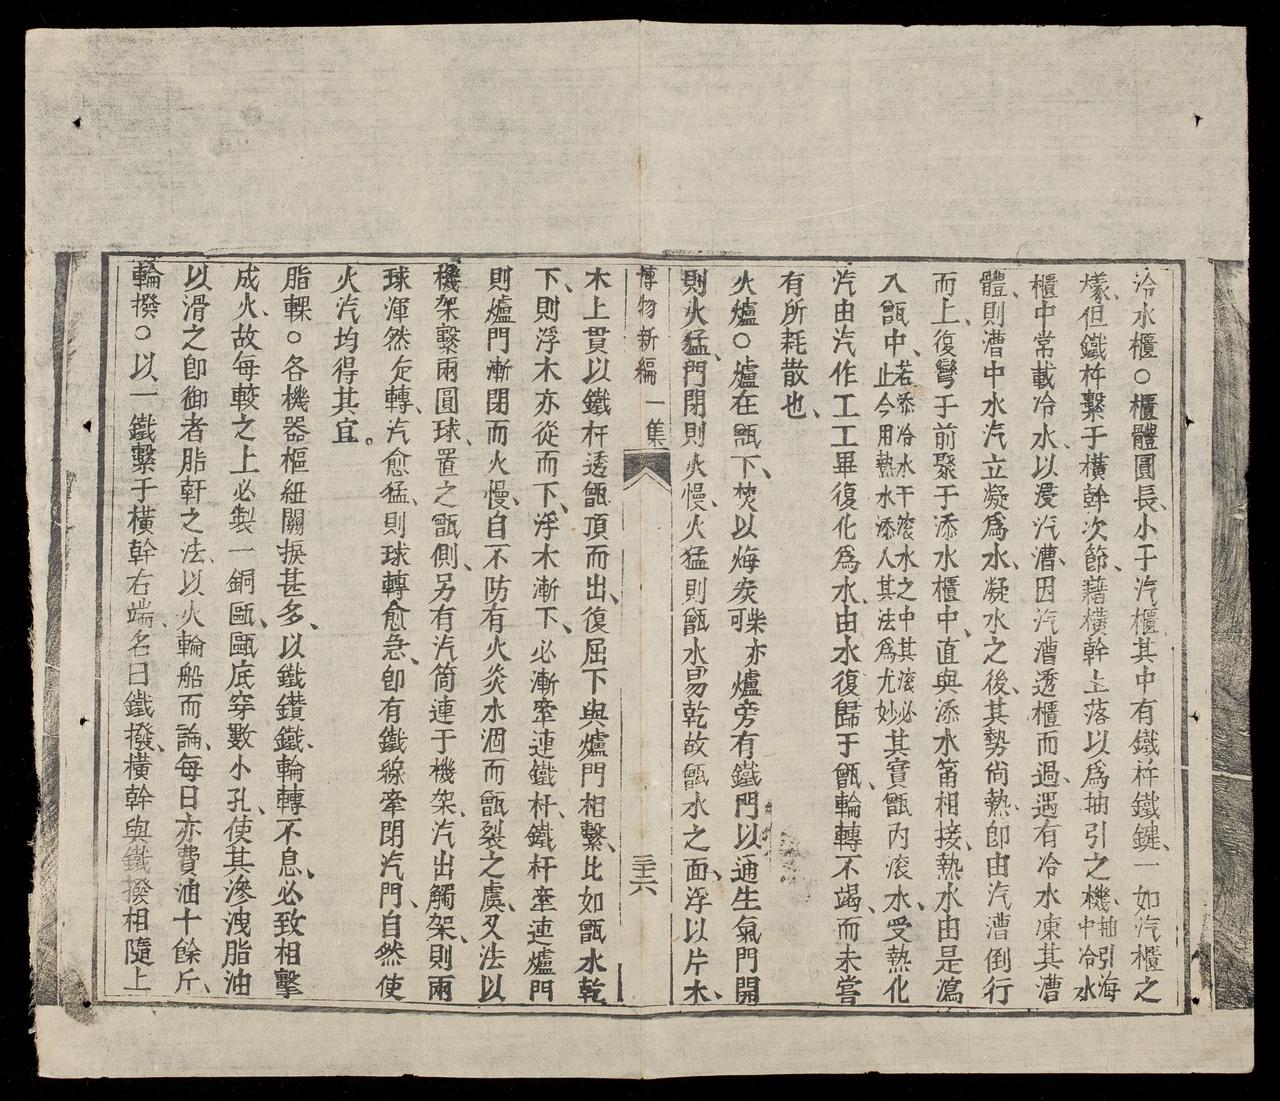 冷水櫃○櫃體圓長、小于汽櫃、其中有鐵杵鐵鍵、一如汽櫃之
樣、但鐵杵繫于橫幹次節、藉橫幹上落以爲抽引之機、抽引海中冷水
櫃中常載冷水、以浸汽漕、因汽漕透櫃而過、遇有冷水凍其漕
體、則漕中水汽立凝爲水、凝水之後、其勢尙熱、卽由汽漕倒行
而上、復彎于前、聚于添水櫃中、直與添水筩相接、熱水由是瀉
入甑中、若添冷水于滾水之中其滾必止今用熱水添人其法爲尤妙其實甑內滾水、受熱化
汽、由汽作工、工畢復化爲水、由水復歸于甑、輪轉不竭、而未嘗
有所耗散也、
火爐○爐在甑下、焚以煤炭柴亦可爐旁有鐵門以通生氣門開
則火猛、門閉則火慢、火猛則甑水易乾故甑水之面、浮以片木、
博物新編 一集 三十六
木上貫以鐵杆透甑頂而出、復屈下與爐門相繫、比如甑水乾
下、則浮木亦從而下、浮木漸下、必漸牽連鐵杆、鐵杆牽連爐門
則爐門漸閉而火慢、自不防有火炎水涸而甑裂之虞、又法以
機架繫兩圓球、置之甑側、另有汽筒連于機架、汽出觸架、則兩
球渾然旋轉、汽愈猛、則球轉愈急、卽有鐵線牽閉汽門、自然使
火汽均得其宜。
脂輠○各機器樞紐關捩甚多、以鐵鑽鐵、輪轉不息、必致相擊
成火、故每輠之上必製一銅甌、甌底穿數小孔、使其滲洩脂油
以滑之卽御者脂軒之法、以火輪船而論、每日亦費油十餘斤、
輪撥○以一鐵繫于橫幹右端、名曰鐵撥、橫幹與鐵撥相隨上